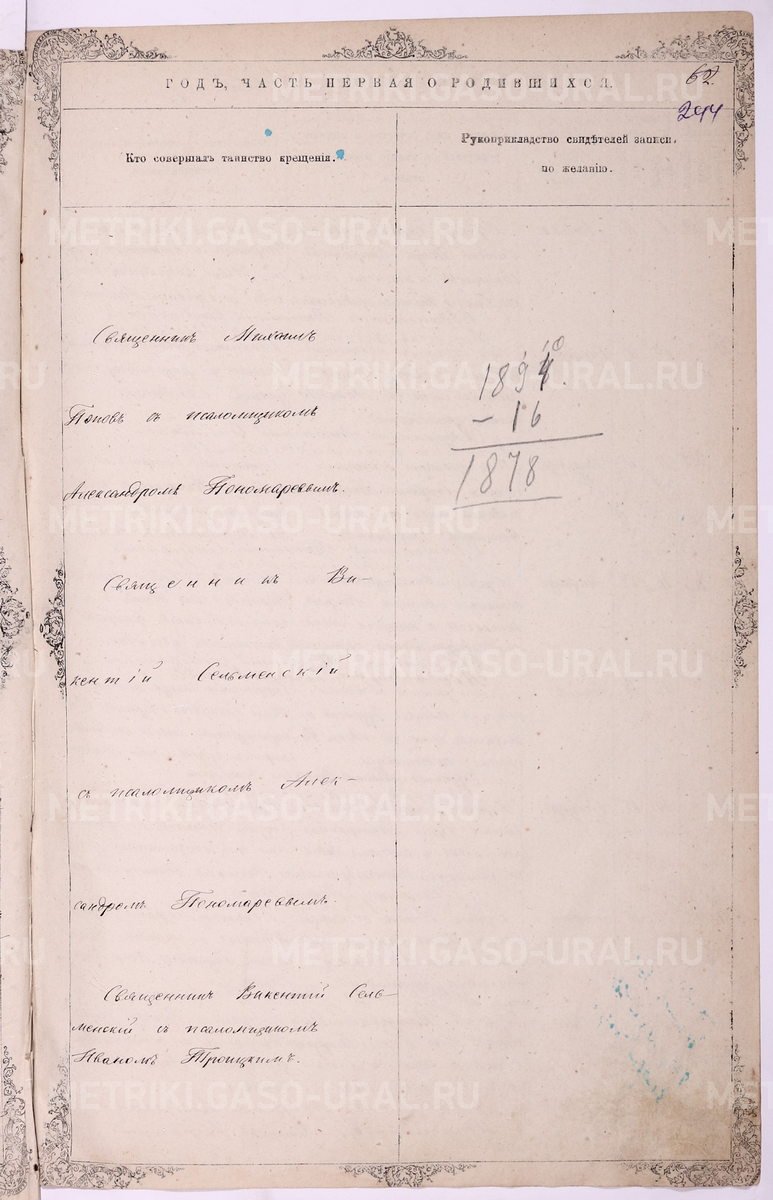 ГОДЪ, ЧАСТЬ ПЕРВАЯ О РОДИВШИХСЯ.
62
244
Кто совершалъ таинство крещенія.
Рукоприкладство свидѣтелей записи,
по желанію.
Священникъ Михаилъ
Поповъ съ псаломщикомъ
Александромъ Пономаревымъ.
Священникъ Ви-
кентій Сельменскій
съ псаломщикомъ Алек-
сандромъ Пономаревымъ.
Священникъ Викентій Сель-
менскій съ псаломщикомъ
Иваномъ Троицкимъ.
1894.
- 16
1878
METRIKI.GASO-URAL.RU